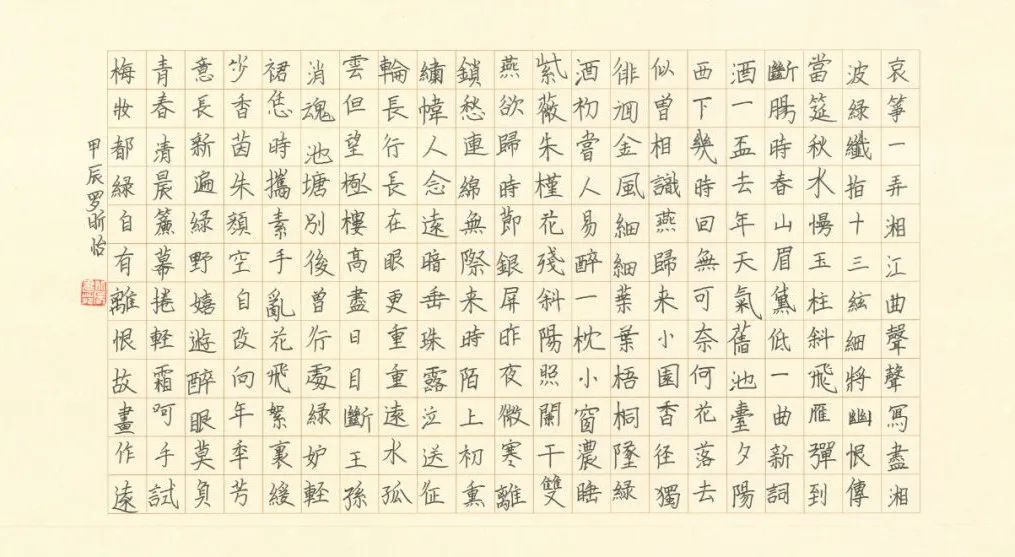 哀箏一弄湘江曲聲聲寫盡湘
波綠纖指十三絃細將幽恨傳
當筵秋水慢玉柱斜飛雁彈到
斷腸時春山眉黛低一曲新詞
酒一盃去年天氣舊池臺夕陽
西下幾時回無可奈何花落去
似曾相識燕歸来小園香径獨
徘徊金風細細葉葉梧桐墜綠
酒初嘗人易醉一枕小窗濃睡
紫薇朱槿花殘斜陽照闌干雙
燕欲歸時節銀屏昨夜微寒離
鎖愁連綿無際来時陌上初熏
繡幃人念遠暗垂珠露泣送征
輪長行長在眼更重重遠水孤
雲但望極樓高盡日目斷王孫
消魂池塘別後曾行處綠妒輕
裙恁時攜素手亂花飛絮裏緩
步香茵朱顏空自改向年秊芳
意長新遍綠野嬉遊醉眼莫負
青春清晨簾幕捲輕霜呵手試
梅妝都綠自有離恨故畫作遠
甲辰罗昕怡